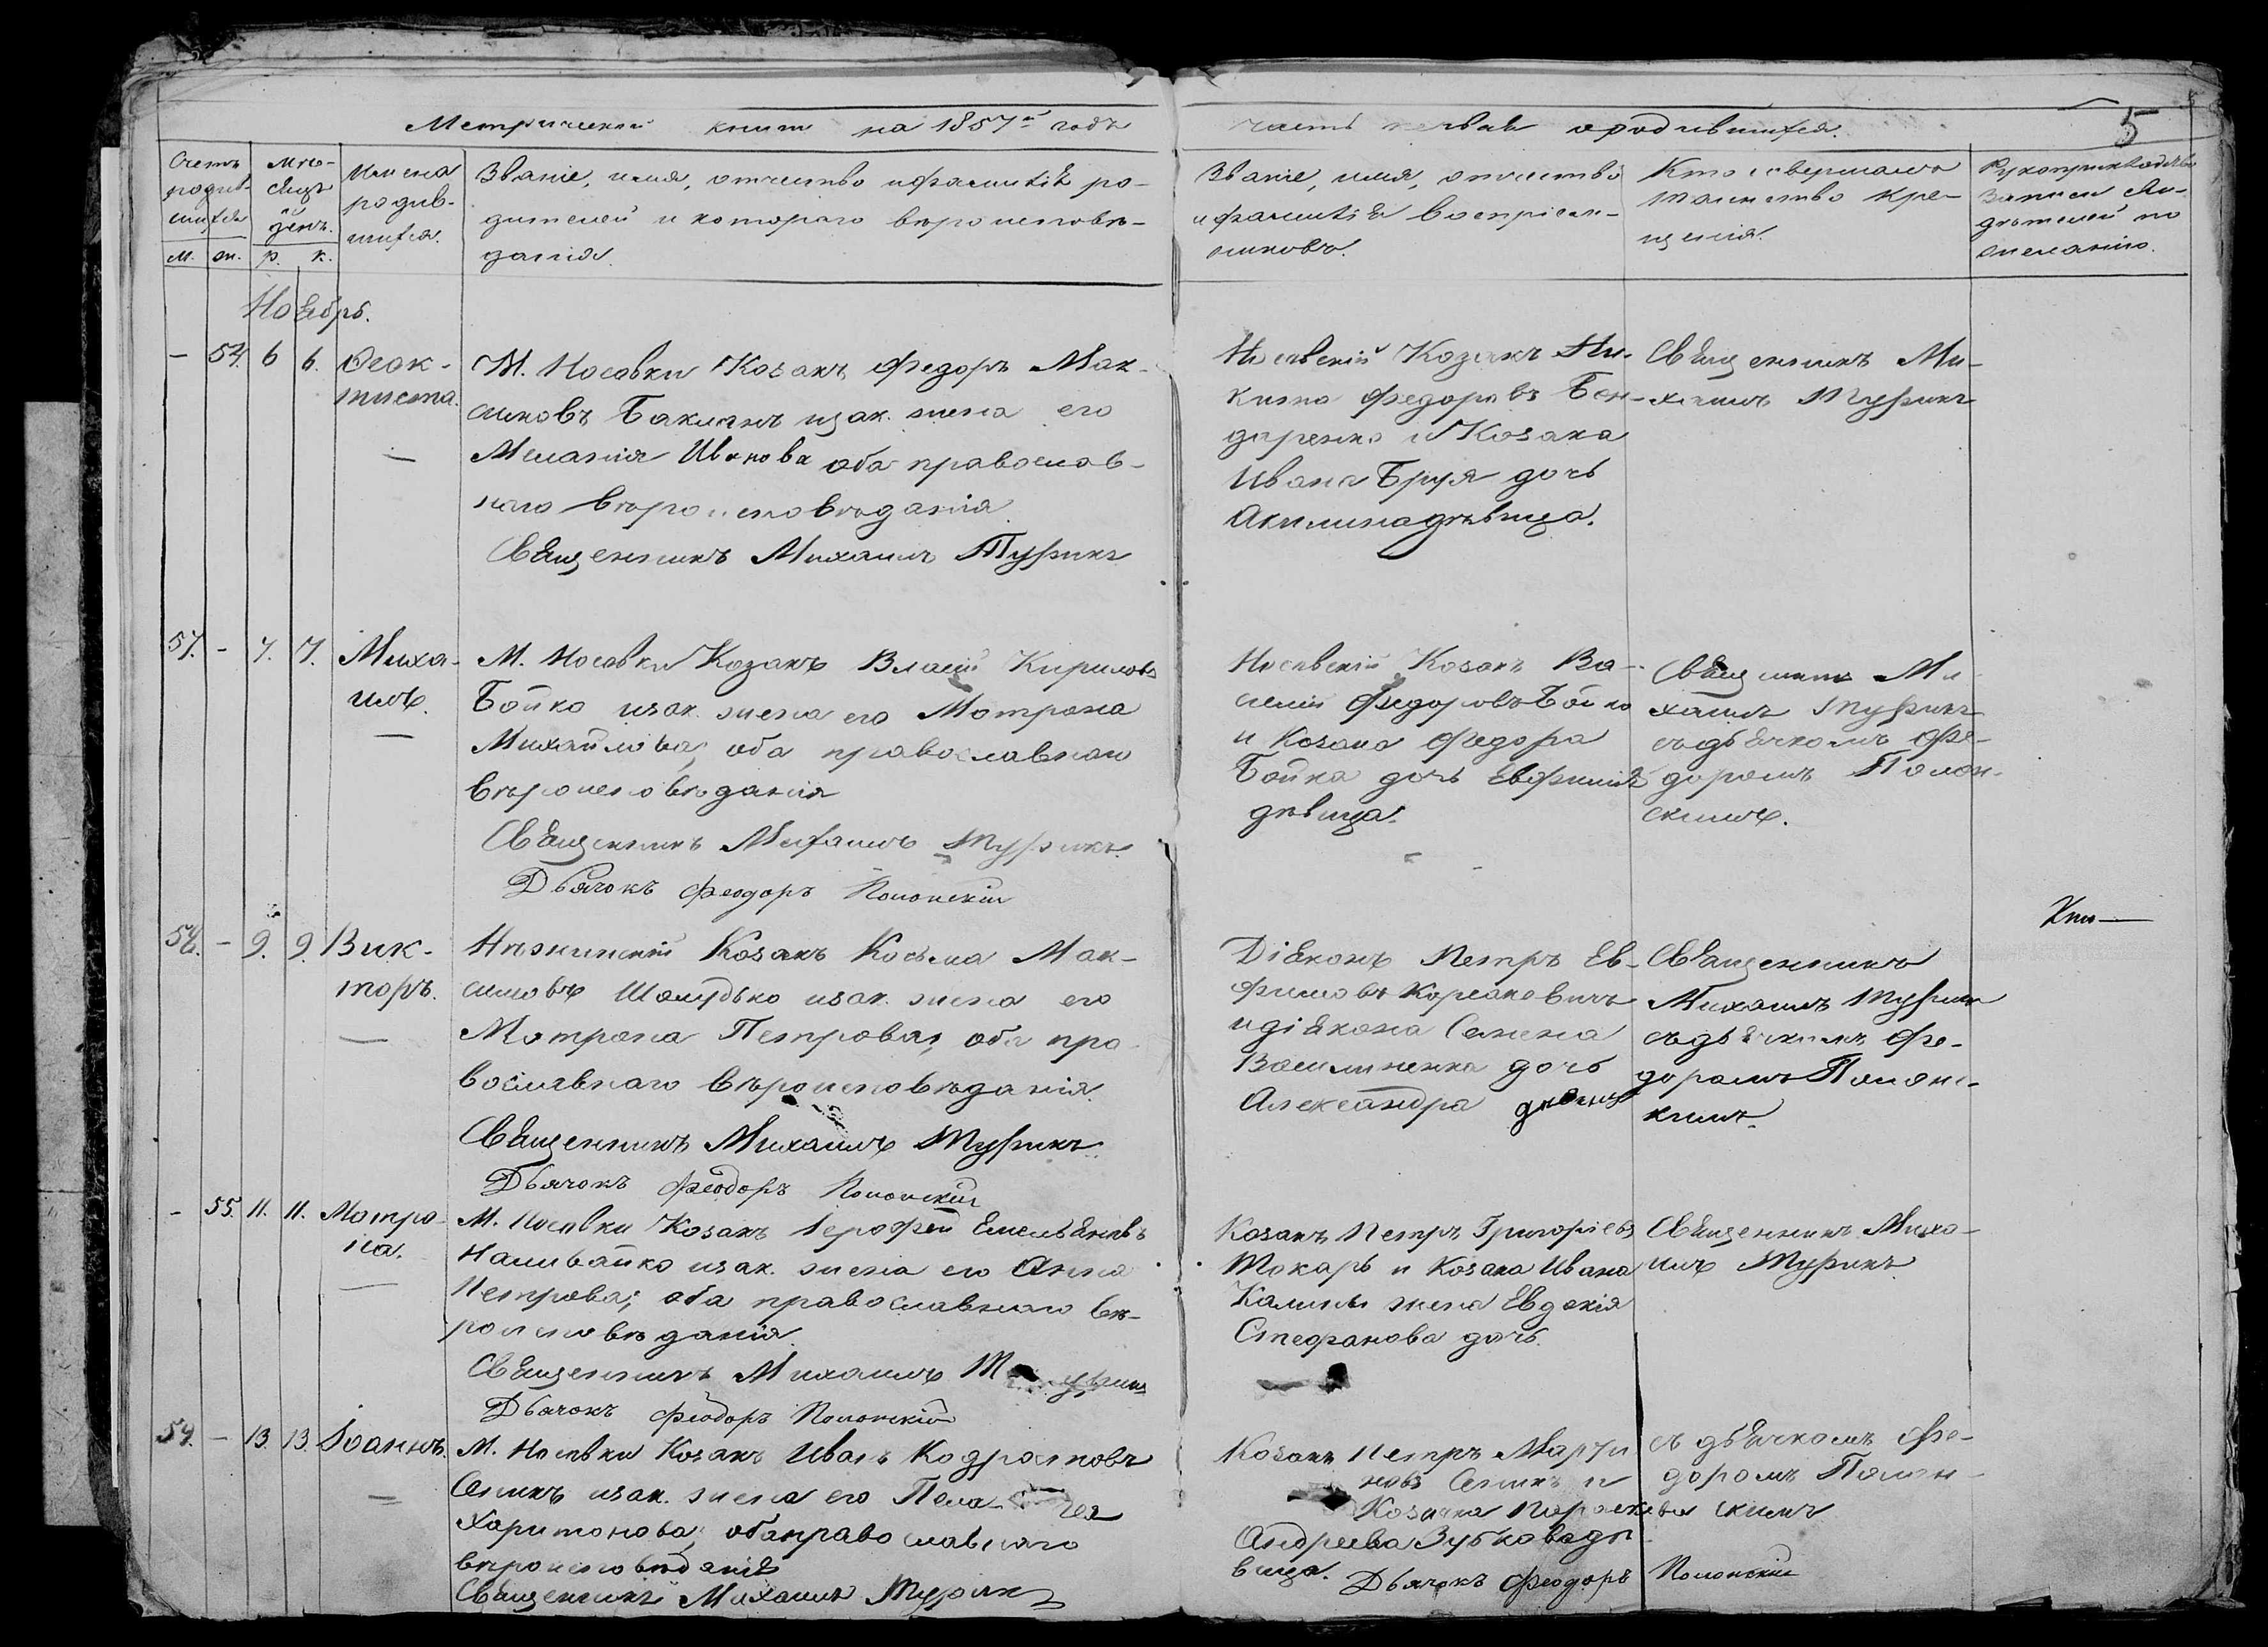 Метрической книги на 1857й годъ
часть первая о родившихся.
5
Счетъ родив-шихся
М. Ж.
Мѣ-сяцъ и день.
р. к.
Имена
родив-
шихся.
Званіе, имя, отчество и фамилія ро-
дителей и котораго вѣроисповѣ-
данія.
Званіе, имя, отчество
и фамилія воспріем-
никовъ.
Кто совершалъ
таинство кре-
щенія.
Рукоприкладство
записи сви-
дѣтелей по
желанію.
Ноябрь.
— 54. 6 6.
Феок-
тиста.
М. Носовки Козакъ Федоръ Мак-
симовъ Бакланъ и зак. жена его
Меланія Иванова оба православ-
наго вѣроисповѣданія.
Священникъ Михаилъ Турикъ
Носовскій Козакъ Ни-
кита Федоровъ Бон-
даренко и Козака
Ивана Бруя дочь
Акилина дѣвица.
Священникъ Ми-
хаилъ Турикъ
57. — 7. 7.
Миха-
илъ.
М. Носовки Козакъ Власій Кириловъ
Бойко и зак. жена его Мотрона
Михайлова; оба православнаго
вѣроисповѣданія
Священникъ Михаилъ Турикъ.
Дьячокъ Феодоръ Полонскій
Носовскій Козакъ Ва-
силій Федоровъ Бойко
и Козака Федора
Бойка дочь Евфимія
дѣвица.
Священникъ Ми-
хаилъ Турикъ
съ дьячкомъ Фе-
доромъ Полон-
скимъ.
58. — 9. 9.
Вик-
торъ.
Нѣжинскій Козакъ Косьма Мак-
симовъ Шолудько и зак. жена его
Мотрона Петрова; оба пра-
вославнаго вѣроисповѣданія.
Священникъ Михаилъ Турикъ.
Дьячокъ Феодоръ Полонскій
Діяконъ Петръ Ев-
фимовъ Корсаковичъ
и діякона Семена
Василиненка дочь
Александра дѣвица
Священникъ
Михаилъ Турикъ
съ дьячкомъ Фе-
доромъ Полонс-
кимъ.
— 55. 11. 11.
Мотро-
на.
М. Носовки Козакъ Іерофей Емельяновъ
Наливайко и зак. жена его Анна
Петрова; оба православнаго вѣ-
роисповѣданія.
Священникъ Михаилъ Турикъ
Дьячокъ Феодоръ Полонскій
Козакъ Петръ Григоріевъ
Токарь и Козака Ивана
Калины жена Евдокія
Стефанова дочь.
Священникъ Миха-
илъ Турикъ
59. — 13. 13.
Іоаннъ.
М. Носовки Козакъ Иванъ Кодратовъ
и зак. жена его
Харитонова; оба православнаго
вѣроисповѣданія
Священникъ Михаилъ Турикъ
Козакъ Петръ Марти
новъ и
Козачка Параскева
Андреева Зубкова дѣ
вица.
съ дьячкомъ Фе-
доромъ Полон-
скимъ
Дьячокъ Феодоръ Полонскій